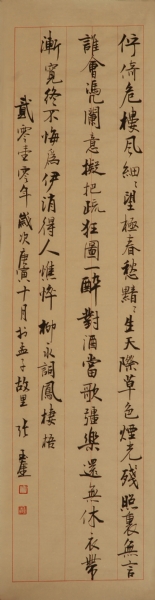 伫倚危樓風細細望極春愁黯黯生天際草色煙光殘照裏無言
誰會憑闌意擬把疏狂圖一醉對酒當歌強樂還無休衣帶
漸寬終不悔為伊消得人憔悴 柳永詞鳳棲梧
貳零壹零年歲次庚寅十月於孟子故里